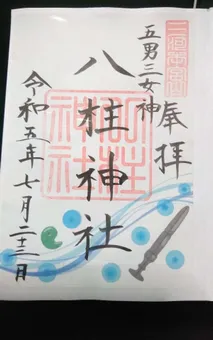 奉拝
五男三女神
八柱神社
令和五年七月二十三日